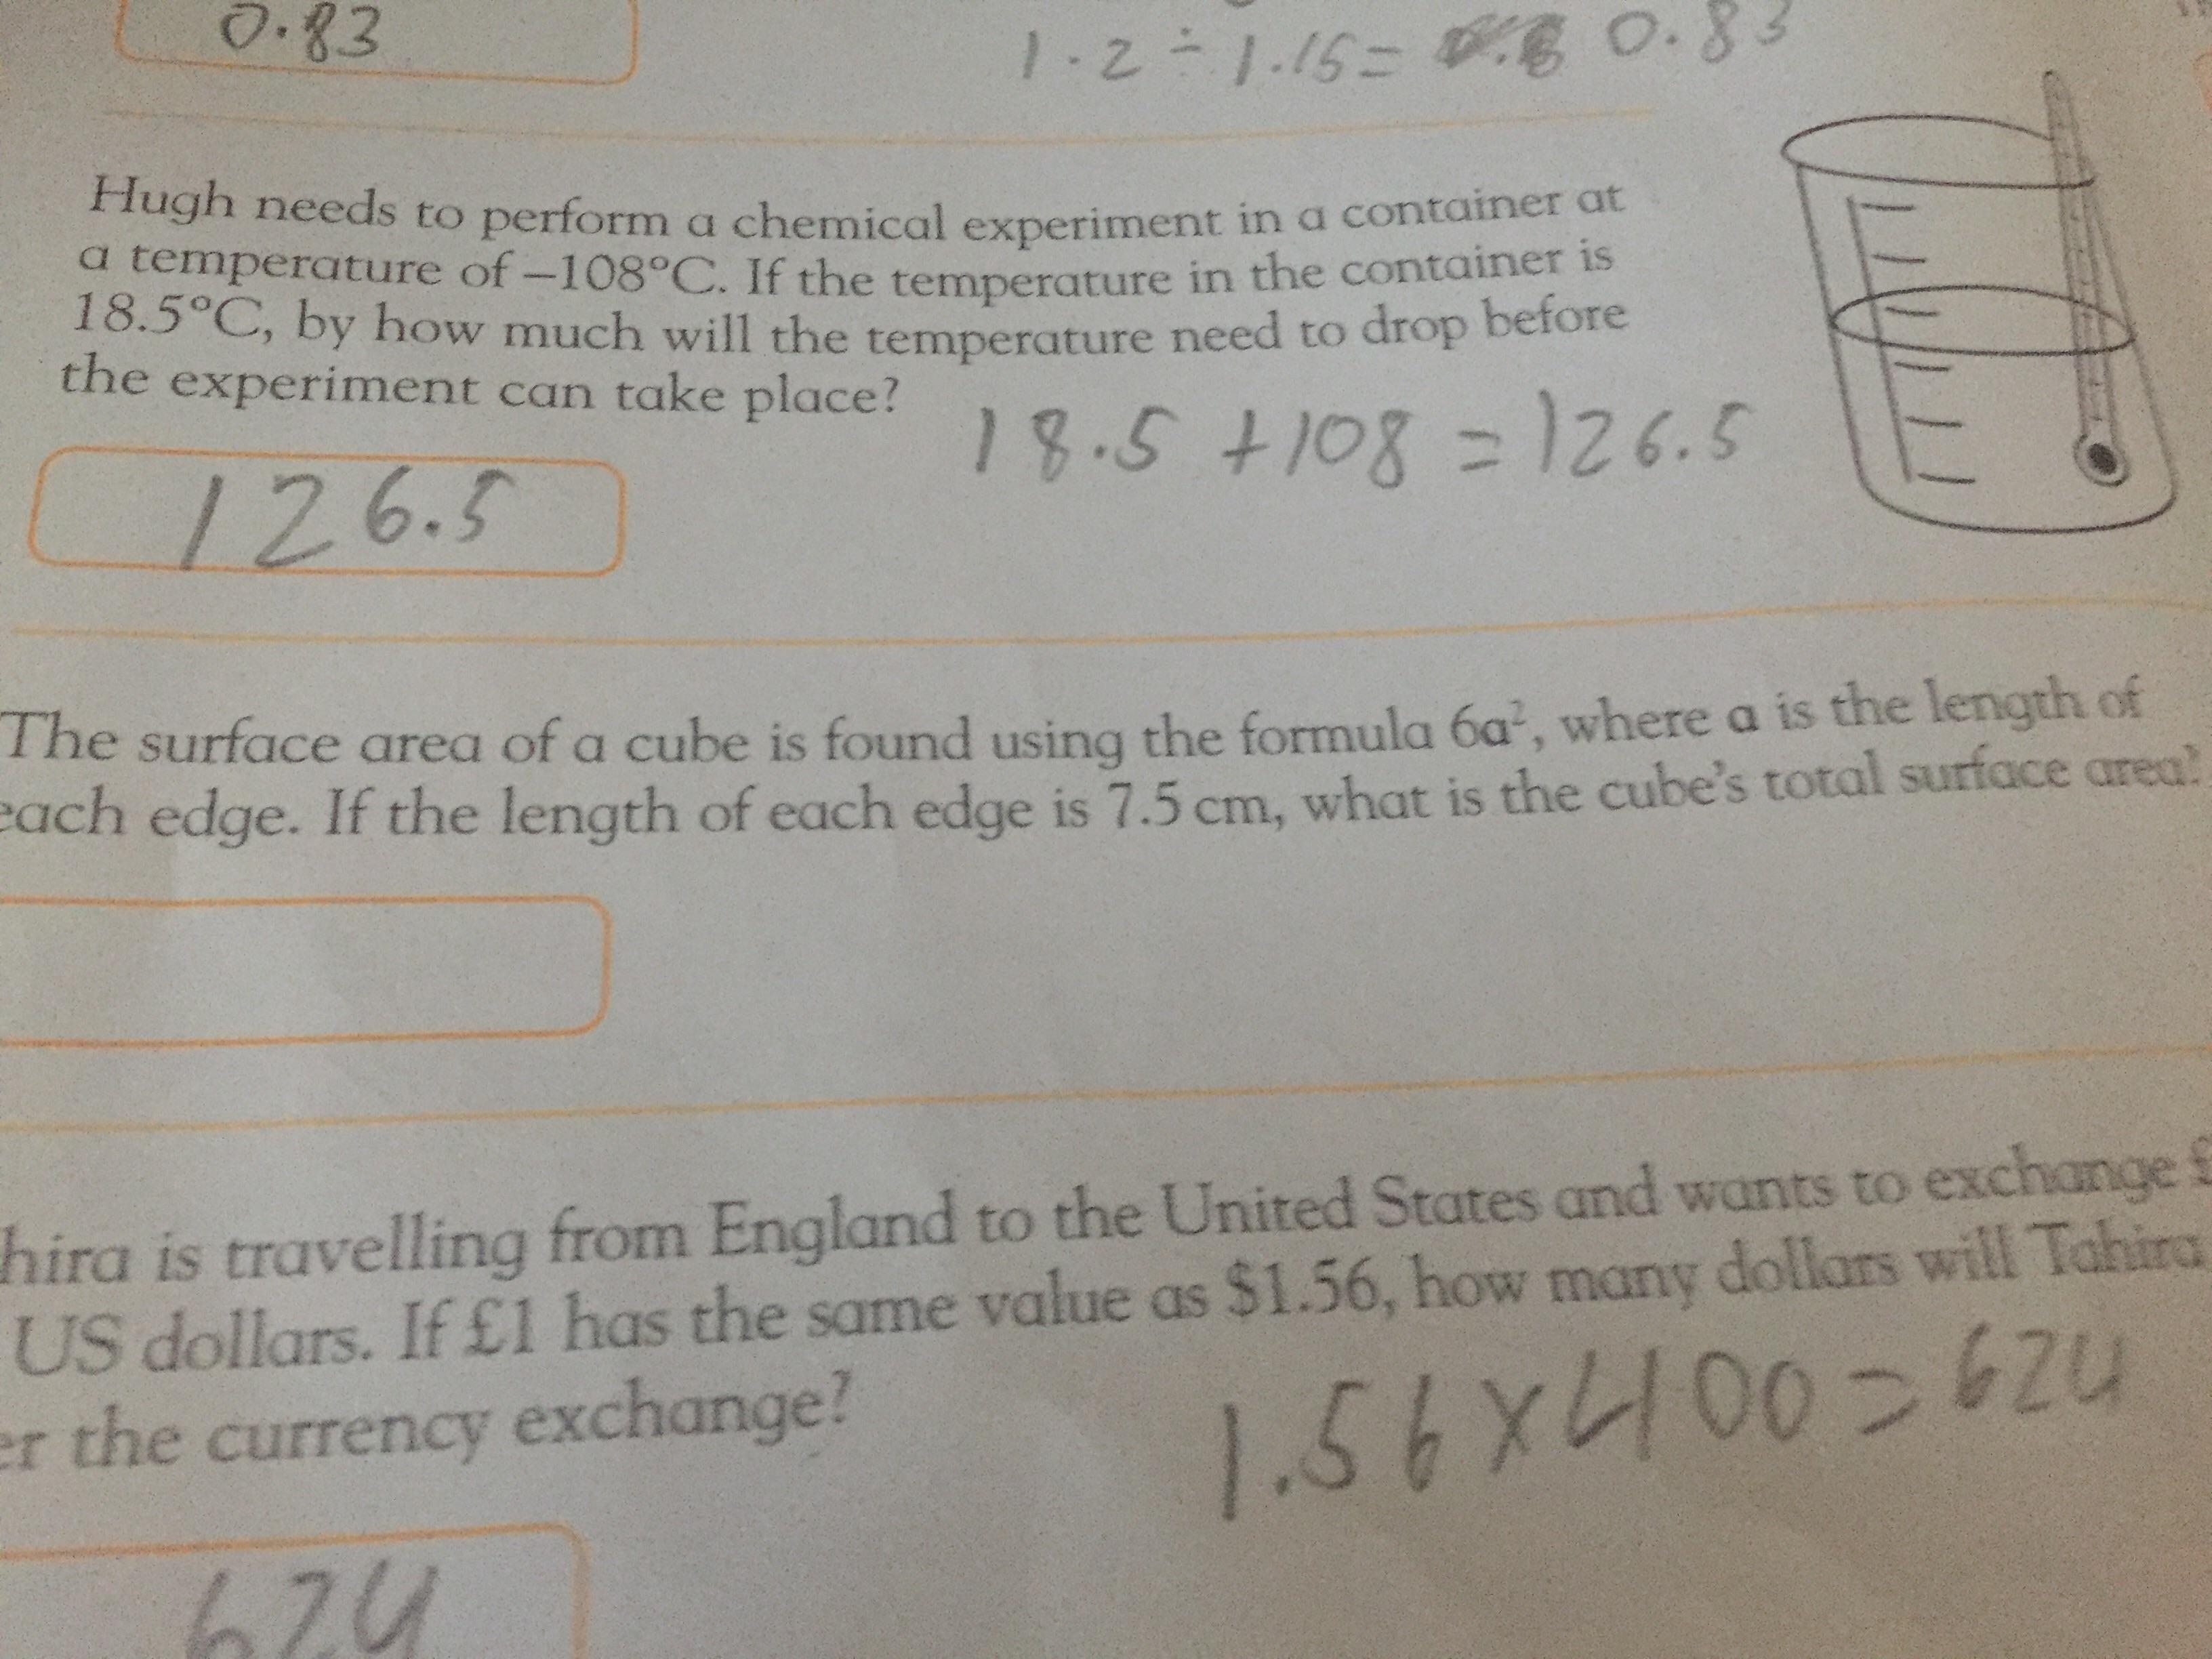 0.83
1.2 ÷ 1.15 = 0.83
Hugh needs to perform a chemical experiment in a container at
a temperature of –108°C. If the temperature in the container is
18.5°C, by how much will the temperature need to drop before
the experiment can take place?
18.5 + 108 = 126.5
126.5
The surface area of a cube is found using the formula 6a², where a is the length of
each edge. If the length of each edge is 7.5 cm, what is the cube's total surface area?
hira is travelling from England to the United States and wants to exchange £
US dollars. If £1 has the same value as $1.56, how many dollars will Tahira
er the currency exchange?
1.56 x 400 = 624
624